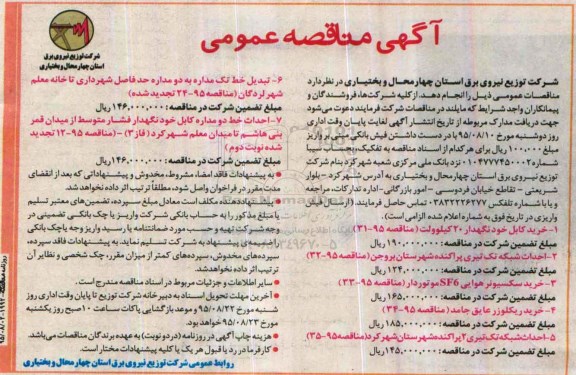 آگهی مناقصه عمومی
شرکت توزیع نیروی برق
استان چهارمحال و بختیاری
شرکت توزیع نیروی برق استان چهارمحال و بختیاری در نظر دارد
مناقصات عمومی ذیل را انجام دهد. از کلیه شرکت‌ها، فروشندگان و
پیمانکاران واجد شرایط که مایلند در مناقصات شرکت فرمایند دعوت می‌شود
جهت دریافت مدارک مربوطه از تاریخ انتشار آگهی لغایت پایان وقت اداری
روز دوشنبه مورخ ۹۵/۰۸/۱۰ با در دست داشتن فیش بانکی مبنی بر واریز
مبلغ ۱۰۰,۰۰۰ ریال برای هر کدام از اسناد مناقصه به تفکیک به حساب سیبا
شماره ۰۱۰۴۷۷۷۴۵۰۰۰۲ نزد بانک ملی مرکزی شعبه شهرکرد بنام شرکت
توزیع نیروی برق استان چهارمحال و بختیاری به آدرس شهرکرد - بلوار
شریعتی - تقاطع خیابان فردوسی - امور بازرگانی - اداره تدارکات، مراجعه
و یا با شماره تلفکس ۰۳۸۳۲۲۲۶۲۷۷ تماس حاصل فرمایند. (ارسال
واریزی در تاریخ فوق به شماره اعلام شده الزامی است).
۱- خرید کابل خود نگهدار ۲۰ کیلوولت (مناقصه ۹۵-۳۱)
مبلغ تضمین شرکت در مناقصه : ۱۹۰,۰۰۰,۰۰۰ ریال
۲- احداث شبکه تک تیری پراکنده شهرستان بروجن (مناقصه ۹۵-۳۲)
مبلغ تضمین شرکت در مناقصه : ۱۲۴,۰۰۰,۰۰۰ ریال
۳- خرید سکسیونر هوایی SF6 موتوردار (مناقصه ۹۵-۳۳)
مبلغ تضمین شرکت در مناقصه : ۱۶۵,۰۰۰,۰۰۰ ریال
۴- خرید ریکلوزر عایق جامد (مناقصه ۹۵-۳۴)
مبلغ تضمین شرکت در مناقصه : ۱۸۵,۰۰۰,۰۰۰ ریال
۵- احداث شبکه تک تیری ۲ پراکنده شهرستان شهرکرد (مناقصه ۹۵-۳۵)
مبلغ تضمین شرکت در مناقصه : ۱۴۵,۰۰۰,۰۰۰ ریال
۶- تبدیل خط تک مداره به دو مداره حد فاصل شهرداری تا خانه معلم
شهر لردگان (مناقصه ۹۵-۲۴ تجدید شده)
مبلغ تضمین شرکت در مناقصه : ۱۴۶,۰۰۰,۰۰۰ ریال
۷- احداث خط دو مداره کابل خود نگهدار فشار متوسط از میدان قمر
بنی هاشم تا میدان معلم شهرکرد (فاز ۳) - (مناقصه ۹۵-۱۲ تجدید
شده نوبت دوم)
مبلغ تضمین شرکت در مناقصه : ۱۴۶,۰۰۰,۰۰۰ ریال
به پیشنهادات فاقد امضا، مشروط، مخدوش و پیشنهاداتی که بعد از انقضای
مدت مقرر در فراخوان واصل شود، مطلقاً ترتیب اثر داده نخواهد شد.
پیشنهاددهنده مکلف است معادل مبلغ سپرده، تضمین‌های معتبر تسلیم
یا مبلغ مذکور را به حساب بانکی شرکت واریز یا چک بانکی تضمینی در
وجه شرکت تهیه و حسب مورد ضمانتنامه یا رسید واریز وجه یا چک بانکی
را ضمیمه پیشنهاد به شرکت تسلیم نماید. به پیشنهادات فاقد سپرده،
سپرده‌های مخدوش، سپرده‌های کمتر از میزان مقرر، چک شخصی و نظایر آن
ترتیب اثر داده نخواهد شد.
سایر اطلاعات و جزئیات مربوط در اسناد مناقصه مندرج است.
آخرین مهلت تحویل اسناد به دبیرخانه شرکت توزیع تا پایان وقت اداری روز
شنبه مورخ ۹۵/۰۸/۲۲ و موعد بازگشایی پاکات ساعت ۱۰ صبح روز یکشنبه
مورخ ۹۵/۰۸/۲۳ خواهد بود.
هزینه چاپ آگهی در روزنامه (در دو نوبت) به عهده برندگان مناقصات می‌باشد.
کارفرما در رد یا قبول هر یک یا کلیه پیشنهادات مختار است.
روابط عمومی شرکت توزیع نیروی برق استان چهارمحال و بختیاری